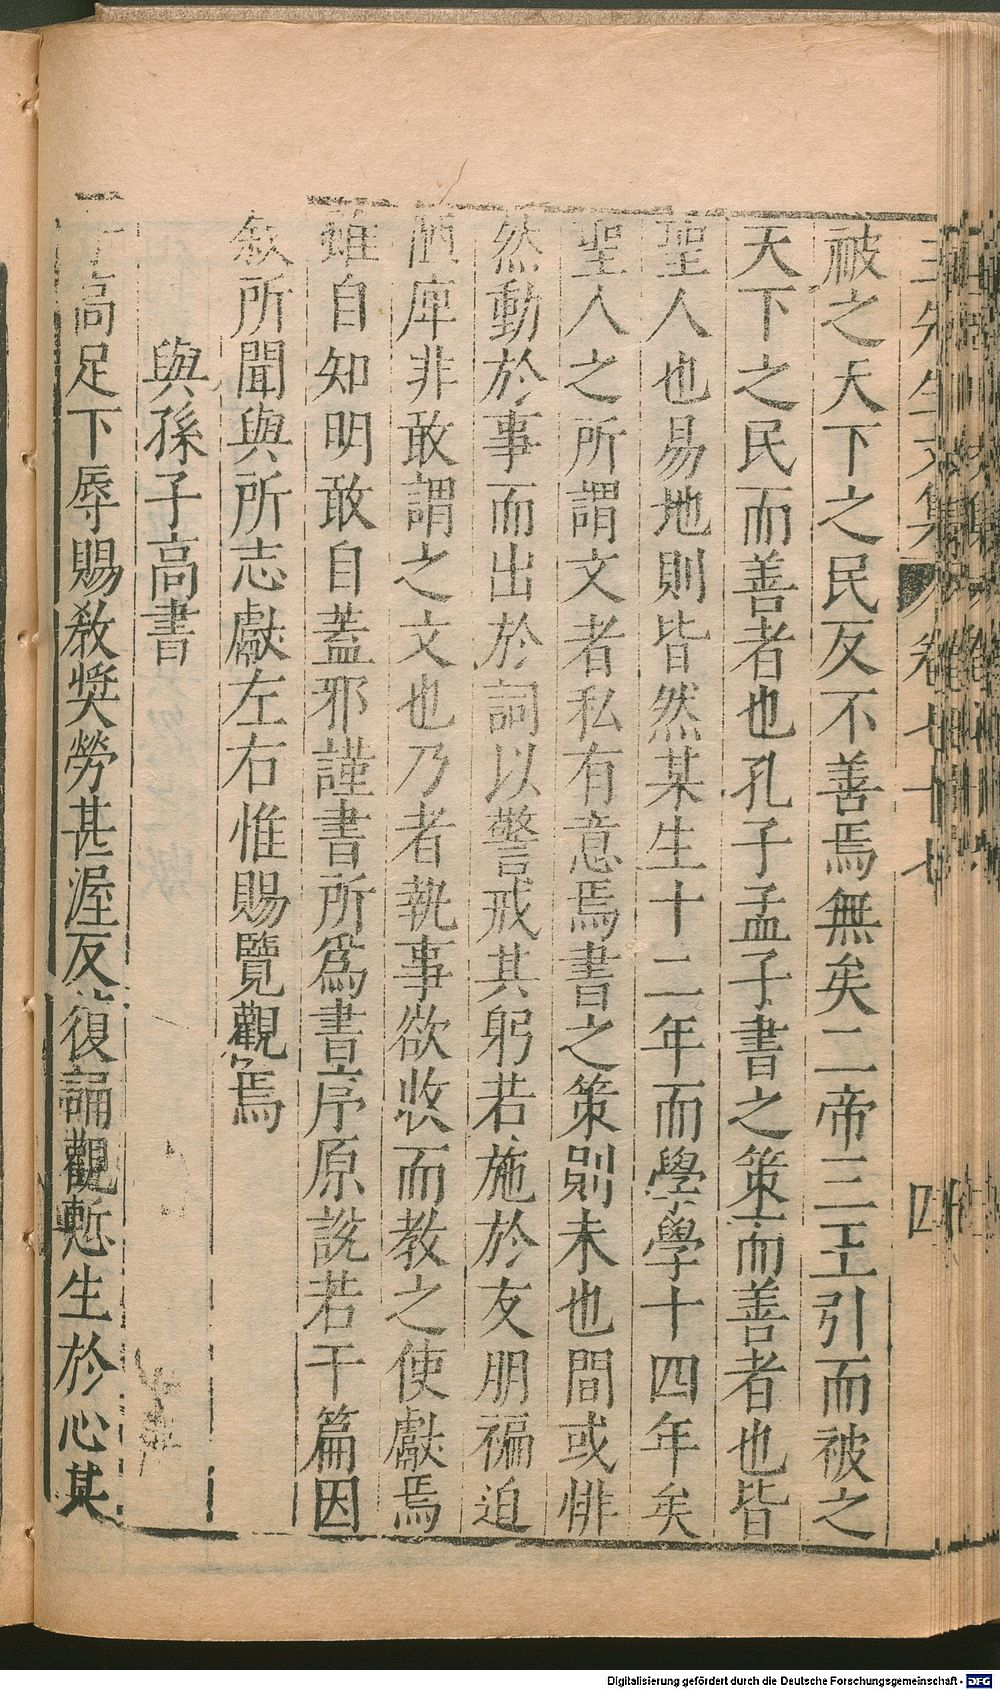 王先生文集 卷七十七 四
被之天下之民反不善焉無矣二帝三王引而被之
天下之民而善者也孔子孟子書之策而善者也皆
聖人也易地則皆然某生十二年而學學十四年矣
聖人之所謂文者私有意焉書之策則未也間或悱
然動於事而出於詞以警戒其躬若施於友朋褊迫
陋庳非敢謂之文也乃者執事欲收而教之使獻焉
雖自知明敢自蓋邪謹書所爲書序原說若干篇因
叙所聞與所志獻左右惟賜覽觀焉
與孫子高書
子高足下辱賜教奬勞甚渥反復誦觀慙生於心其
Digitalisierung gefördert durch die Deutsche Forschungsgemeinschaft - DFG